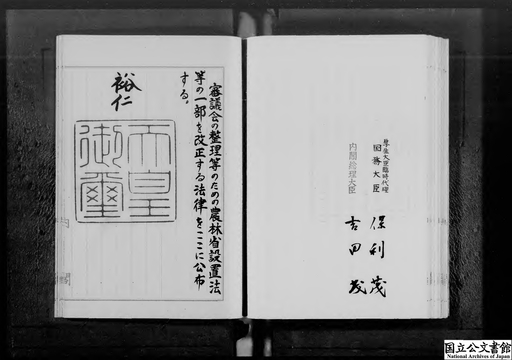 大臣臨時代理
国務大臣 保利茂
内閣総理大臣 吉田茂
審議会の整理等のための農林省設置法
等の一部を改正する法律をここに公布
する。
裕仁
天皇
御璽
国立公文書館
National Archives of Japan